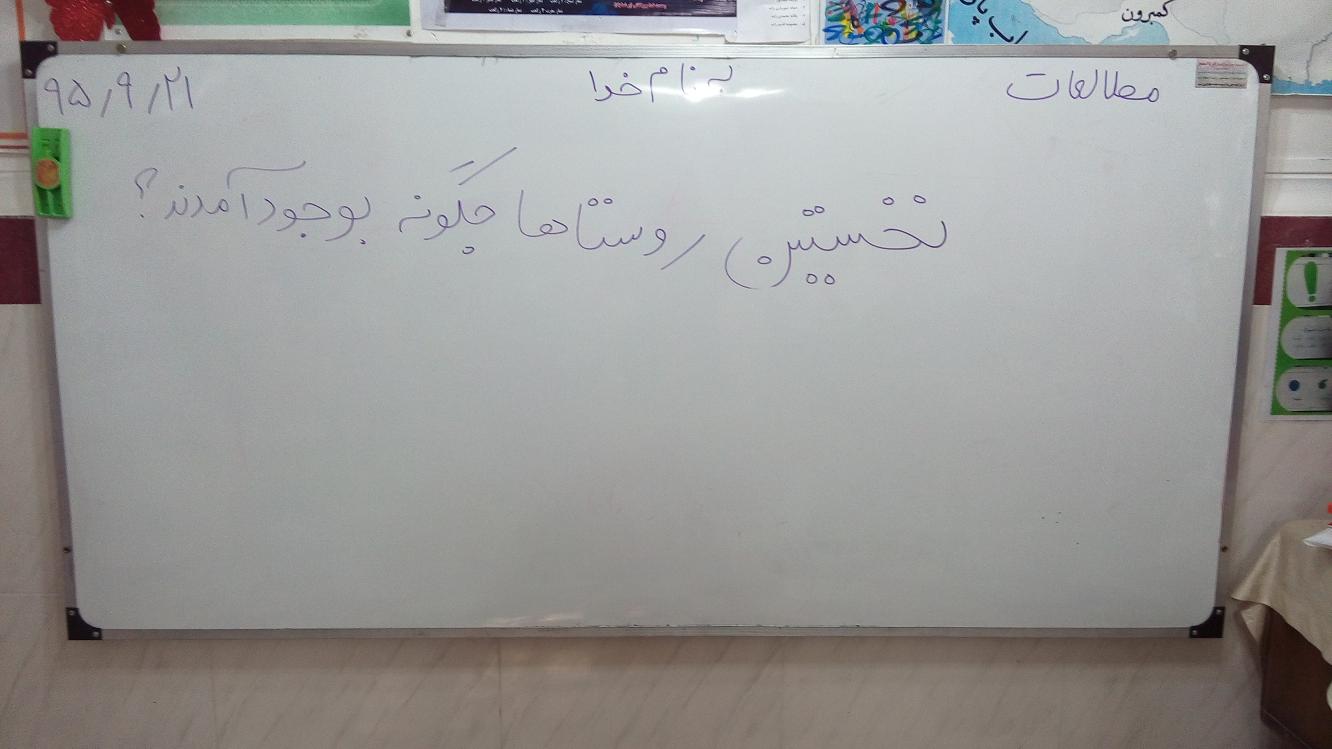 کمبرون
مطالعات
به نام خدا
۹۵٫۹٫۲۱
نخستین روستاها چگونه بوجود آمدند؟